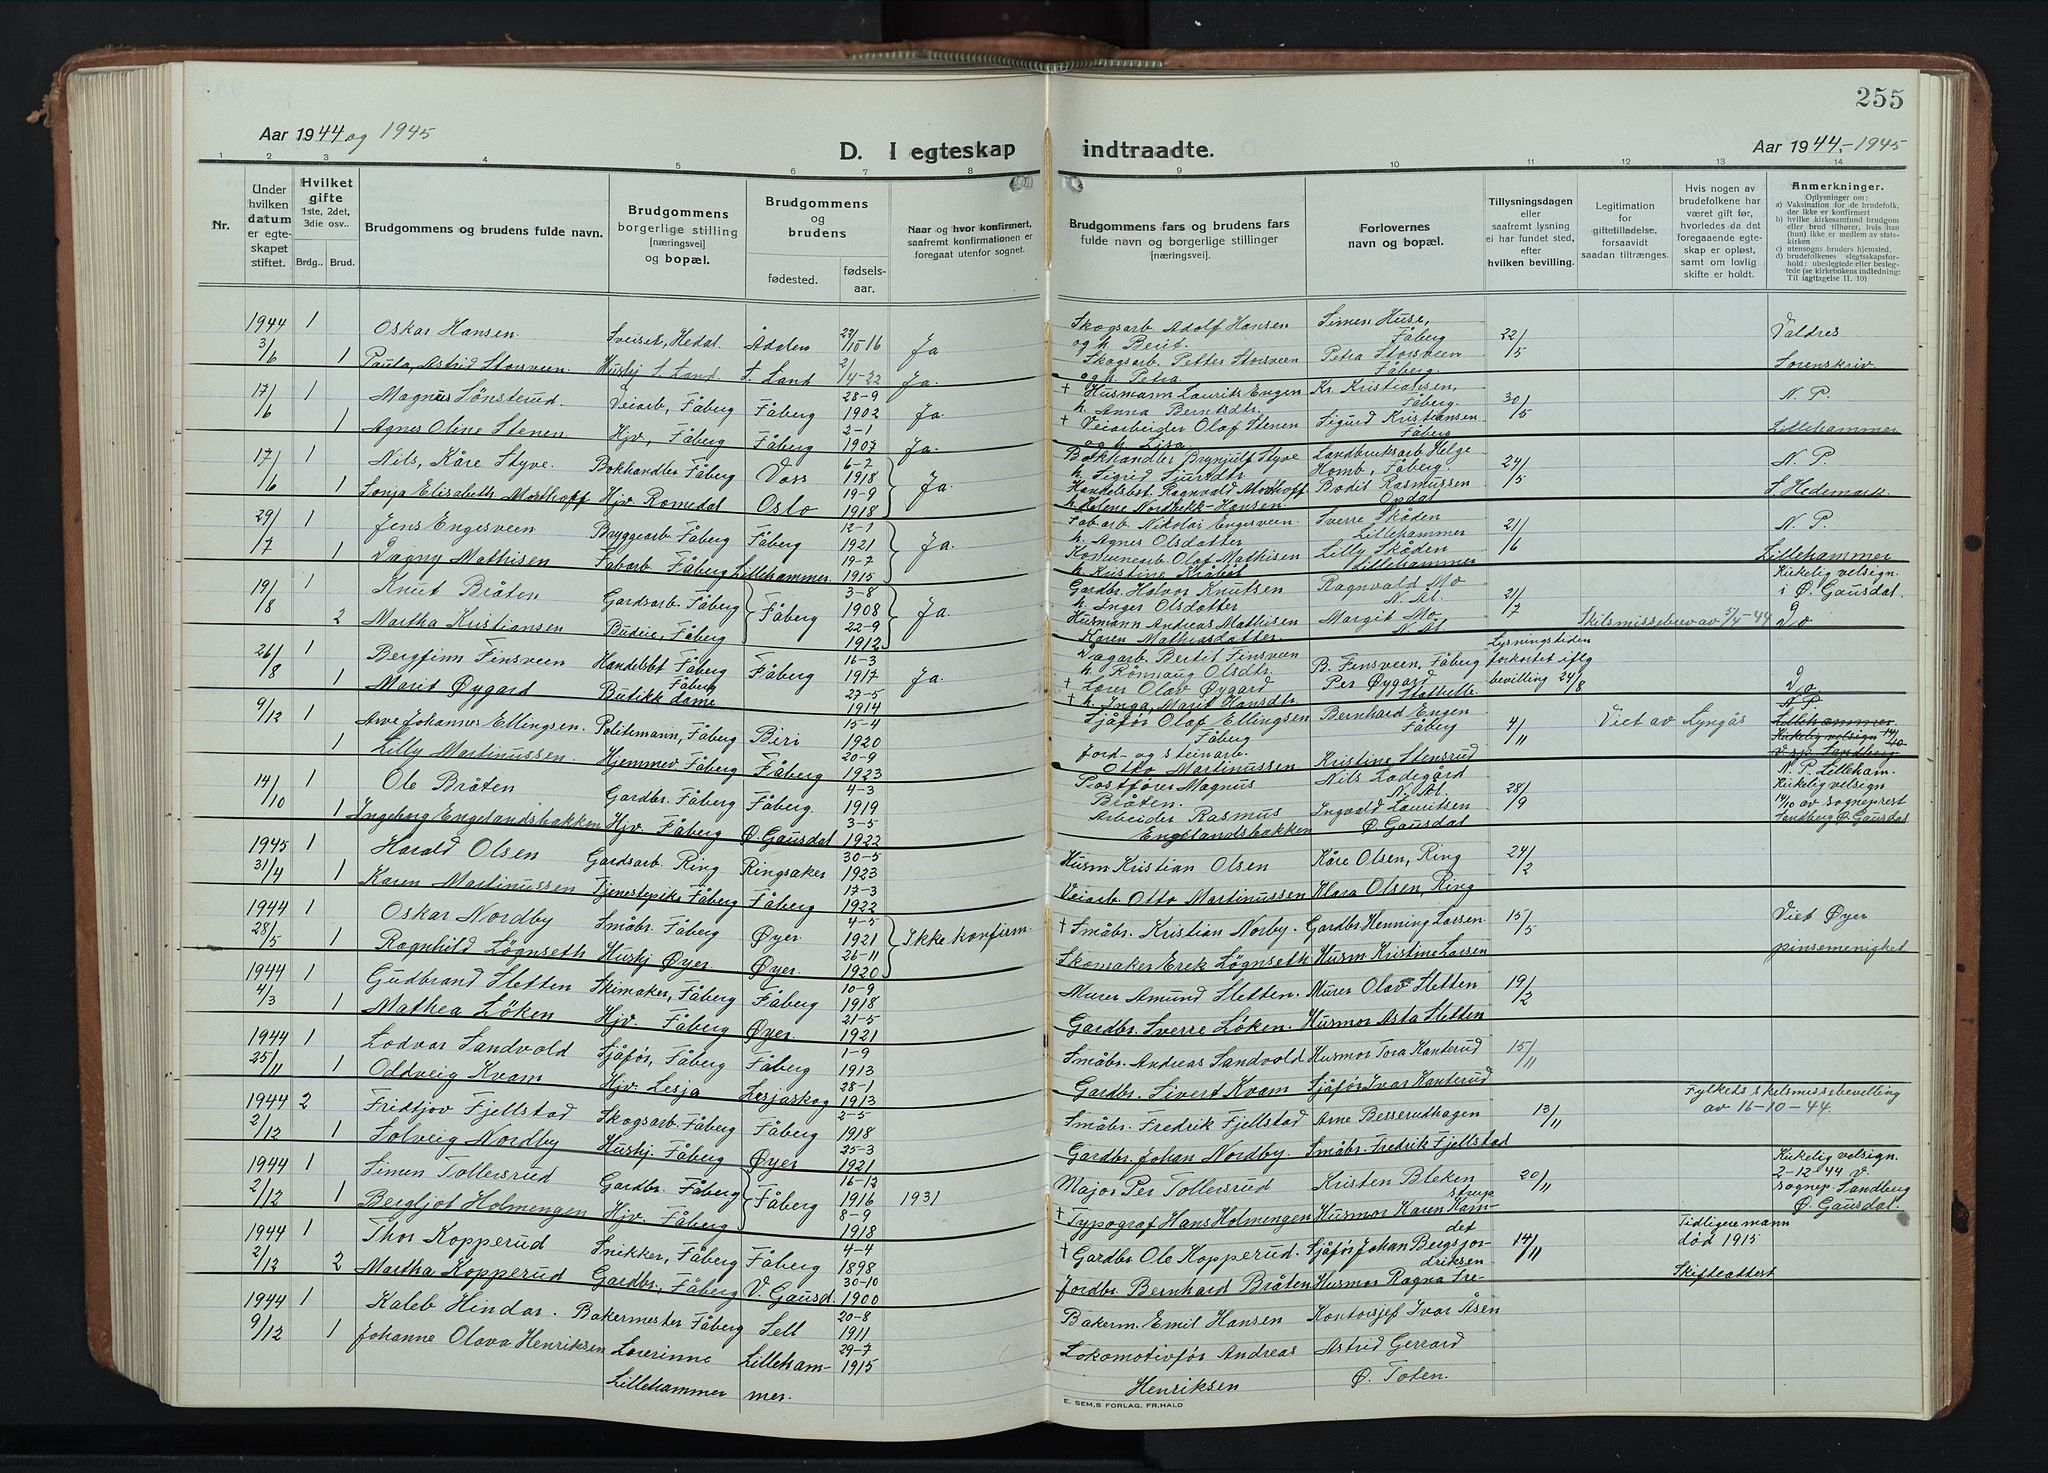 255
Aar 1944 og 1945
D. I egteskap indtraadte.
Aar 1944.-1945
1 2 3 4 5 6 7 8 9 10 11 12 13 14
Nr.
Under hvilken datum er egteskapet stiftet.
Hvilket gifte 1ste, 2det, 3die osv..
Brdg.. Brud.
Brudgommens og brudens fulde navn.
Brudgommens borgerlige stilling [næringsvei] og bopæl.
Brudgommens og brudens
fødested.
fødsels-aar.
Naar og hvor konfirmert, saafremt konfirmationen er foregaat utenfor sognet.
Brudgommens fars og brudens fars fulde navn og borgerlige stillinger [næringsvei].
Forlovernes navn og bopæl.
Tillysningsdagen eller saafremt lysning ei har fundet sted, efter hvilken bevilling.
Legitimation for giftetilladelse, forsaavidt saadan tiltrænges.
Hvis nogen av brudefolkene har været gift før, hvorledes da det foregaaende egteskap er opløst, samt om lovlig skifte er holdt.
Anmerkninger.
Oplysninger om:
a) Vaksination for de brudefolk, der ikke er konfirmert
b) hvilke kirkesamfund brudgom eller brud tilhører, hvis han (hun) ikke er medlem av statskirken
c) utensogns bruders hjemsted.
d) brudefolkenes slegtskapsforhold: ubeslegtede eller beslegtede (se kirkebokens indledning: Til iagttagelse II. 10)
1944 3/6 1 Oskar Hansen Sveiset, Hedal Ådalen 22/10-16 Ja Skogsarb. Adolf Hansen og h. Berit Simen Huse, Fåberg 22/5 Valdres
1 Paula Astrid Storsveen Husbj S. Land S. Land 2/4-22 Ja. Skogsarb. Petter Storsveen og h. Petra Petra Storsveen Fåberg. Sorenskriv.
17/6 1 Magnus Lønsterud Veiarb, Fåberg Fåberg 28-9 1902 Ja + Husmann Laurits Engen h. Anna Berntsdtr. Kr. Kristiansen, Fåberg. 30/5 N. P.
1 Agnes Oline Stenen Hjv, Fåberg Fåberg 2-1 1907 Ja. + Veiarbeider Olaf Stenen og h. Lisa Sigurd Kristiansen Fåberg Lillehammer
17/6 1 Nils, Kåre Styve. Bokhandler Fåberg Voss 6-7 1918 Ja. Bokhandler Brynjulf Styve h. Sigrid Sjursdtr. Landbruksarb Helge Homb, Fåberg. 24/5 N. P.
1 Sonja Elisabeth Mordhoff Hjv Romedal Oslo 19-9 1918 Handelsbst. Ragnvald Mordhoff h. Helene Nordbekk-Hansen. Bodil Rasmussen Opdal S. Hedemark
29/7 1 Jens Engesveen Bryggearb. Fåberg Fåberg 12-1 1921 Ja. Fabarb Nikolai Engesveen. h. Agnes Olsdatter Sverre Skåden Lillehammer 21/6 N. P.
1 Dagny Mathisen Fabarb Fåberg Lillehammer 19-7 1915 Komunearb Olaf Mathisen h. Kristine Kråbøl Lilly Skåden Lillehammer Lillehammer
19/8 1 Knut Bråten Gardsarb. Fåberg Fåberg 3-8 1908 Ja Gardbr. Halvor Knutsen h. Inger Olsdatter Ragnvald Mo N. Ål. 21/7 Kirkelig velsign. i Ø. Gausdal.
2 Martha Kristiansen Budeie, Fåberg 22-9 1912 Husmann Andreas Mathisen Karen Mathiasdatter Margit Mo N. Ål Skilsmissebrev av 5/4-44 Do
26/8 1 Bergfinn Finsveen Handelsbt Fåberg Fåberg 16-3 1917 Ja. Dagarb. Bertil Finsveen h. Rønnaug Olsdtr. B. Finsveen, Fåberg Lysningstiden forkortet iflg bevilling 24/8
1 Marit Øygard Butikkdame Fåberg 27-5 1914 + Lærer Olav Øygard + h. Inga, Marit Hansdtr. Per Øygard Stathelle Do
9/12 1 Arve Johannes Ellingsen. Politemann, Fåberg Biri 15-4 1920 Sjåfør Olaf Ellingsen Fåberg Bernhard Engen Fåberg 4/11 Viet av Lyngås N. P. Lillehammer
1 Lilly Martinussen. Hjemmev Fåberg Fåberg 20-9 1923 Jord- og steinarb. Otto Martinussen Kristine Stensrud Kirkelig velsign 14/10 v. sp. Sandberg
14/10 1 Ole Bråten Gardbr. Fåberg Fåberg 4-3 1919 Postfører Magnus Bråten. Nils Ladegård N. Ål. 28/9 N. P. Lilleham. Kirkelig velsign
1 Ingeborg Engelandsbakken Hjv. Fåberg Ø. Gausdal 3-5 1922 Arbeider Rasmus Engelandsbakken Ingvald Lauritsen Ø. Gausdal 14/10 av sogneprest Sandberg Ø. Gausdal
1945 31/4 1 Harald Olsen Gardsarb. Ring Ringsaker 30-5 1923 Husm Kristian Olsen Kåre Olsen, Ring 24/2
1 Karen Martinussen Tjenestepike Fåberg Fåberg 17-3 1922 Veiarb. Otto Martinussen Klara Olsen, Ring
1944 28/5 1 Oskar Nordby Småbr. Fåberg Øyer 4-5 1921 Ikke konfirm. + Småbr. Kristian Norby. Gardbr Henning Larsen. 15/5 Viet Øyer
1 Ragnhild Løgnseth Husbj Øyer Øyer. 26-11 1920 Skomaker Erek Løgnseth Husm Kristine Larsen pinsemenighet
1944 4/3 1 Gudbrand Sletten Skimaker, Fåberg Fåberg 10-9 1918 Murer Amund Sletten. Murer Olav Sletten 19/2
1 Mathea Løken Hjv. Fåberg Øyer. 21-5 1921 Gardbr. Sverre Løken. Husmor Asta Sletten
1944 25/11 1 Lodvar Sandvold Sjåfør, Fåberg Fåberg 1-9 1913 Småbr. Andreas Sandvold Husmor Tora Kanterud 15/11
1 Oddveig Kvam Hjv. Lesja Lesjaskog 28-1 1913 Gardbr. Sivert Kvam Sjåfør Ivar Kanterud
1944 2/12 2 Fridtjov Fjellstad Skogsarb. Fåberg Fåberg 2-5 1918 Småbr. Fredrik Fjellstad Arne Besserudhagen 13/11 Fylkets skilsmissebevilling av 16-10-44.
1 Solveig Nordby Husbj. Fåberg Øyer 25-3 1921 Gardbr. Johan Nordby. Småbr. Fredrik Fjellstad
1944 2/12 1 Simen Tollersrud Gardbr. Fåberg Fåberg 16-12 1916 1931 Major Per Tollersrud Kristen Blekenstrup 20/11 Kirkelig velsign. 2-12-44 v. sognep. Sandberg Ø. Gausdal.
1 Bergljot Holmengen Hjv. Fåberg 8-9 1918 + Typograf Hans Holmengen Husmor Karen Hamdet
1944 2/12 1 Thor Kopperud Snikker, Fåberg Fåberg 4-4 1898 + Gardbr Ole Kopperud. Sjåfør Johan Bergsjordriksen 14/11 Tidligere mann død 1915
2 Martha Kopperud Gardbr., Fåberg V. Gausd. 30-10 1900 Jordbr Bernhard Bråten Husmor Ragna Fre- Skifteattest
1944 9/12 1 Kaleb Hindar. Bakermester Fåberg Sell 20-8 1911 Bakerm. Emil Hansen Kontorsjef Ivar Åsen
1 Johanne Olava Henriksen Lærerinne Lillehammer Lillehammer. 29-7 1915 Lokomotivfør Andreas Henriksen Astrid Gerrard Ø. Toten.
E. SEM,S FORLAG, FR.HALD